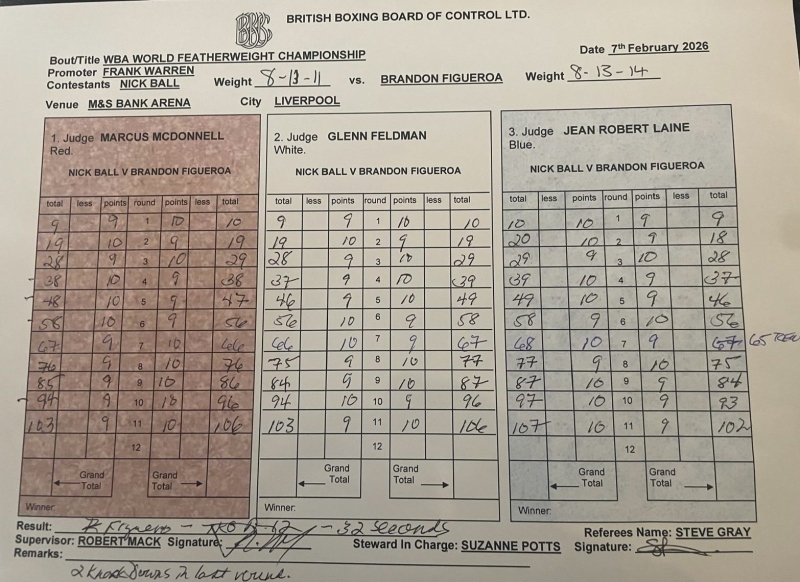 BRITISH BOXING BOARD OF CONTROL LTD.
Bout/Title WBA WORLD FEATHERWEIGHT CHAMPIONSHIP Date 7th February 2026
Promoter FRANK WARREN
Contestants NICK BALL Weight 8-13-11 vs. BRANDON FIGUEROA Weight 8-13-14
Venue M&S BANK ARENA City LIVERPOOL
1. Judge MARCUS MCDONNELL 2. Judge GLENN FELDMAN 3. Judge JEAN ROBERT LAINE
Red. White. Blue.
NICK BALL V BRANDON FIGUEROA NICK BALL V BRANDON FIGUEROA NICK BALL V BRANDON FIGUEROA
total less points round points less total total less points round points less total total less points round points less total
9 9 1 10 10 9 9 1 10 10 10 10 1 9 9
19 10 2 9 19 19 10 2 9 19 20 10 2 9 18
28 9 3 10 29 28 9 3 10 29 29 9 3 10 28
38 10 4 9 38 37 9 4 10 39 39 10 4 9 37
48 10 5 9 47 46 9 5 10 49 49 10 5 9 46
58 10 6 9 56 56 10 6 9 58 58 9 6 10 56
67 9 7 10 66 66 10 7 9 67 68 10 7 9 67 65
76 9 8 10 76 75 9 8 10 77 77 9 8 10 75
85 9 9 10 86 84 9 9 10 87 87 10 9 9 84
94 9 10 10 96 94 10 10 9 96 97 10 10 9 93
103 9 11 10 106 103 9 11 10 106 107 10 11 9 102
12 12 12
Grand Total Grand Total Grand Total Grand Total Grand Total Grand Total
Winner: Winner: Winner:
Result: B Figuero - TKO 12 - 32 seconds Referees Name: STEVE GRAY
Supervisor: ROBERT MACK Signature: Steward In Charge: SUZANNE POTTS Signature:
Remarks:
2 knockdowns in last round.